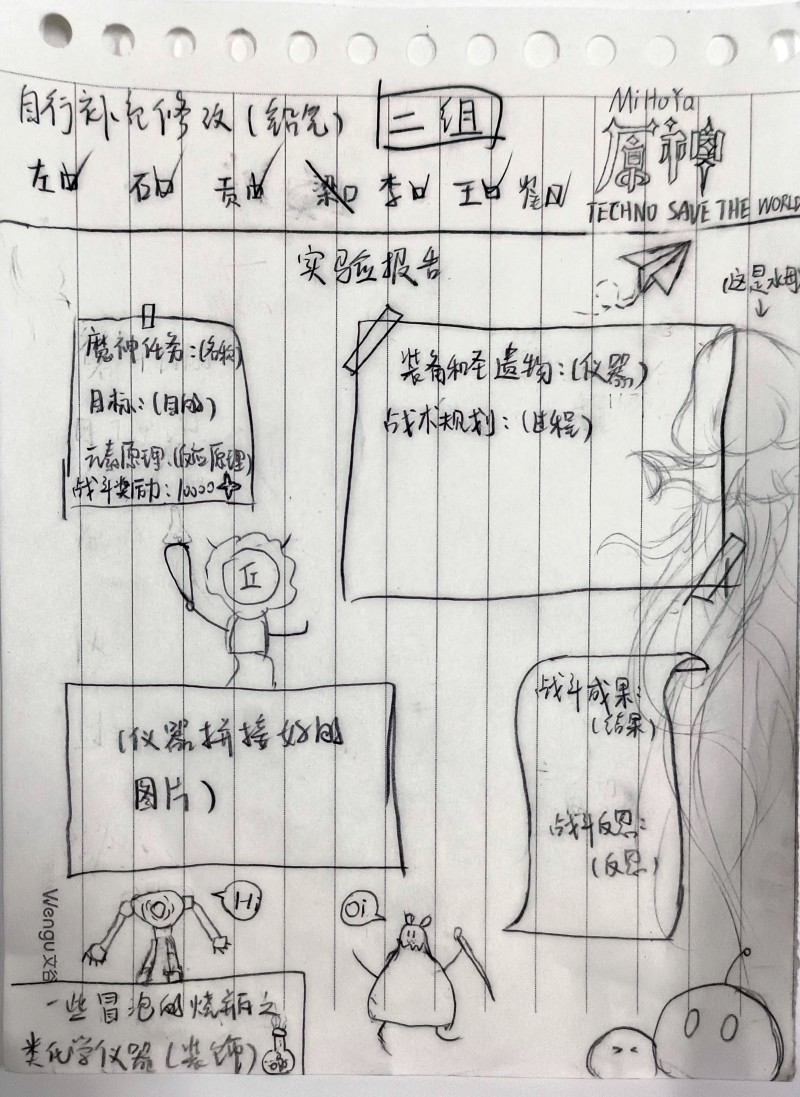 自行补充修改(铅笔)
二组
MiHoYo
原神
TECHNO SAVE THE WORLD
左 石 贡 梁 李 王 翟
实验报告
(这是水母
魔神任务:(名称)
目标:(目的)
元素原理:(反应原理)
战斗奖励:10000
装备和圣遗物:(仪器)
战术规划:(过程)
(仪器拼接好的
图片)
战斗成果:
(结果)
战斗反思:
(反思)
Hi
Oi
Wengu文谷
一些冒泡的烧瓶之
类化学仪器(装饰)